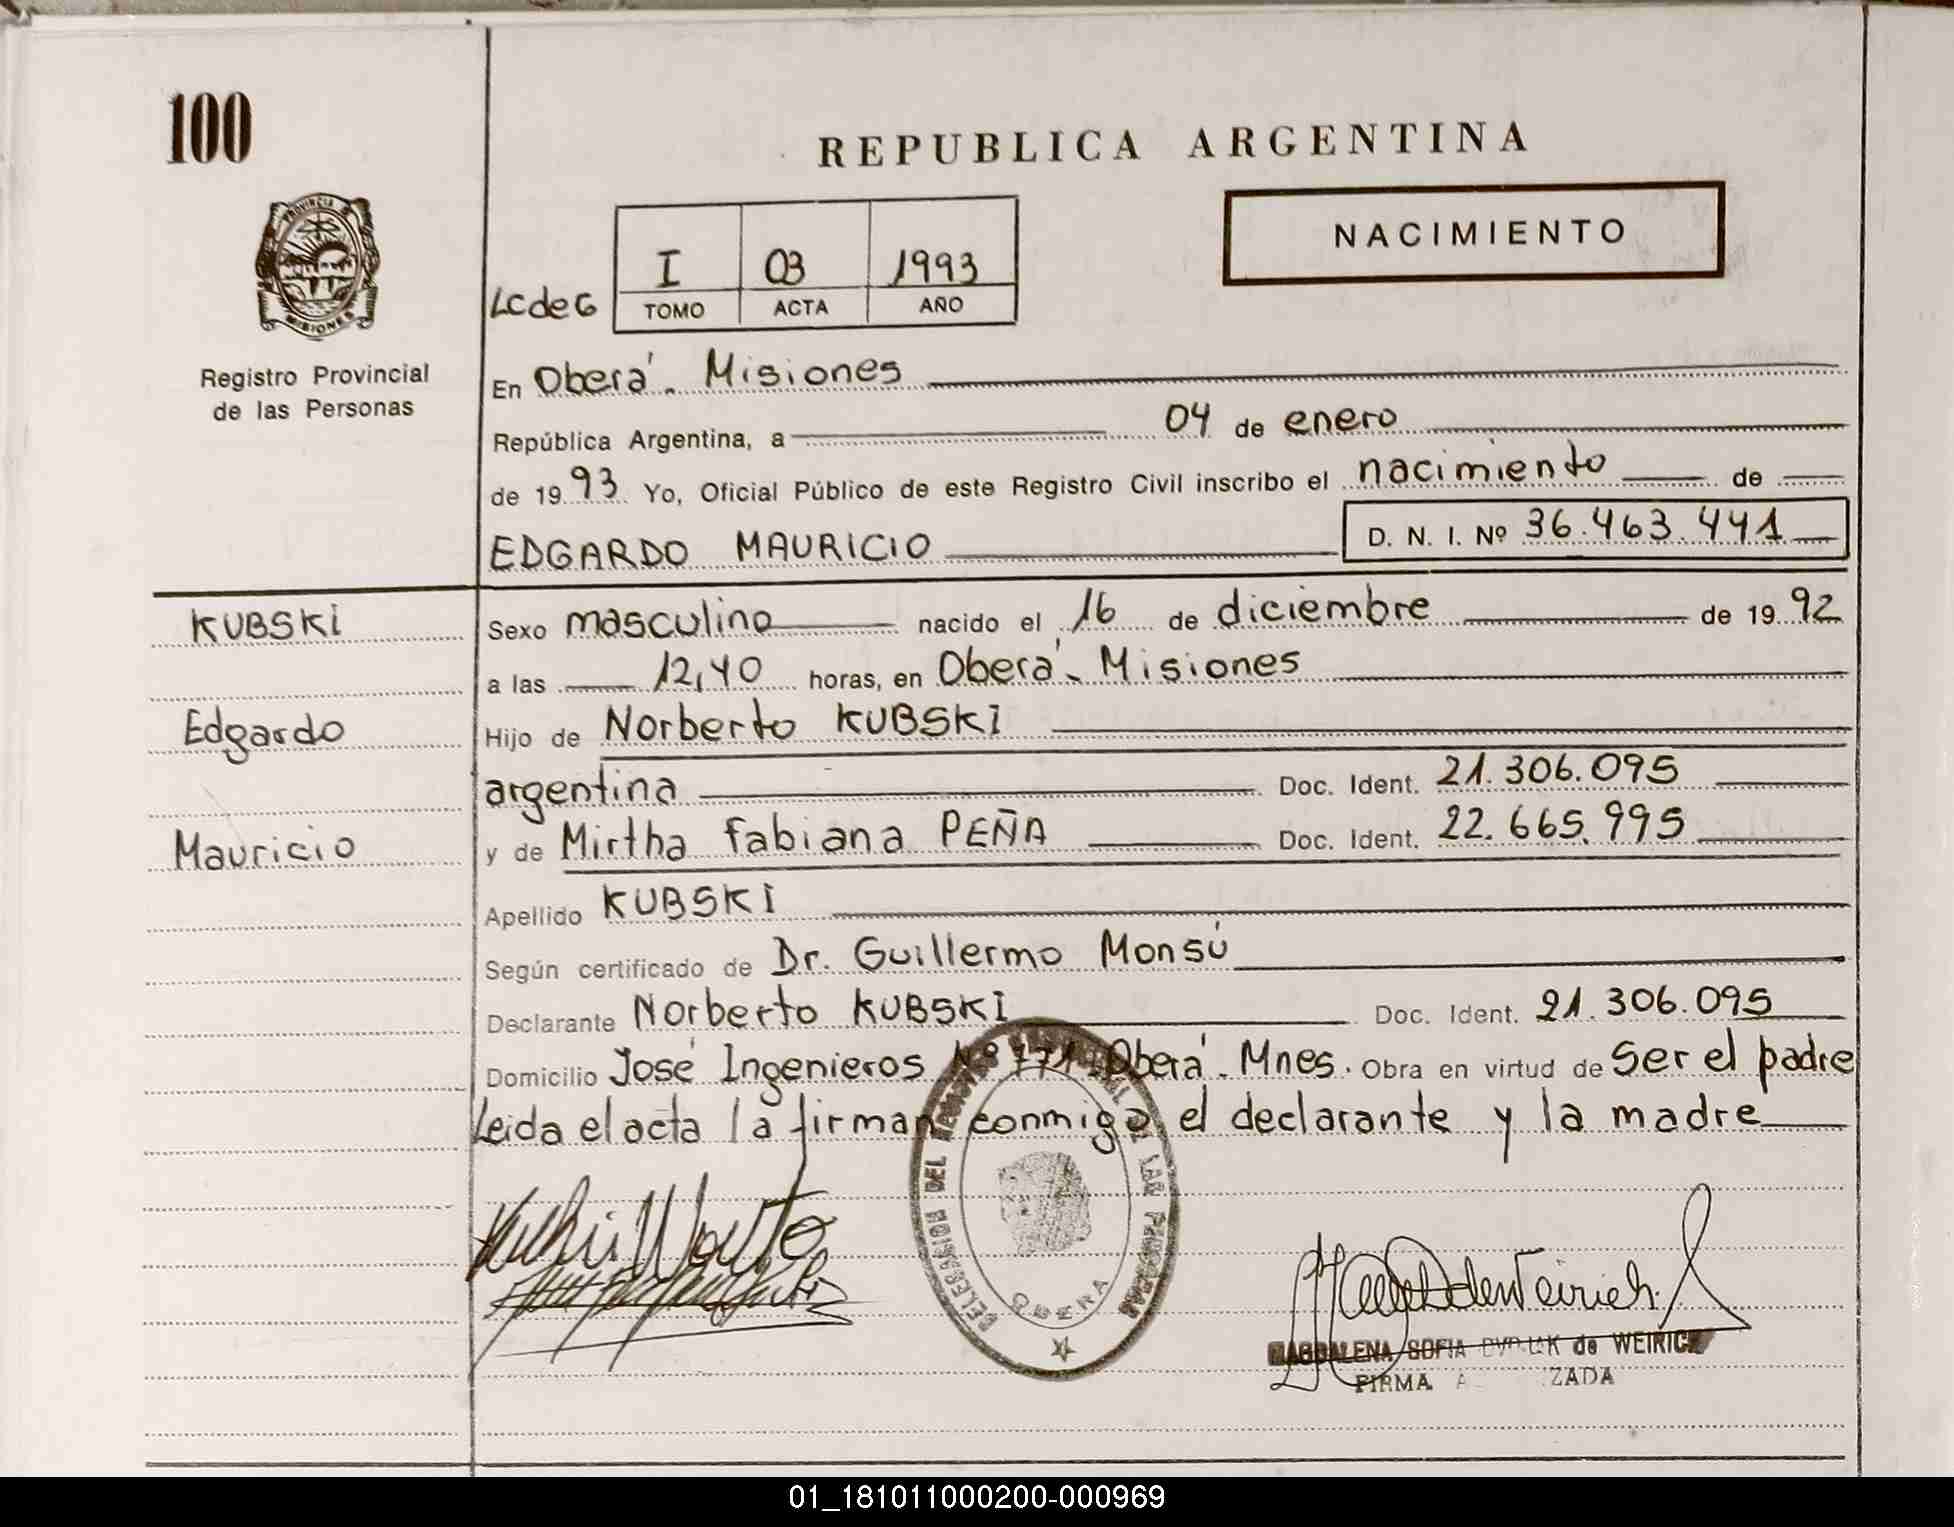 100
REPUBLICA ARGENTINA
PROVINCIA D
MISIONES
NACIMIENTO
I 03 1993
LCdeG TOMO ACTA AÑO
Registro Provincial
de las Personas
En Oberá. Misiones
República Argentina, a 04 de enero
de 19 93 Yo, Oficial Público de este Registro Civil inscribo el nacimiento de
EDGARDO MAURICIO D. N. I. Nº 36.463.441
KUBSKI Sexo masculino nacido el 16 de diciembre de 19 92
a las 12,40 horas, en Oberá. Misiones
Edgardo Hijo de Norberto KUBSKI
argentina Doc. Ident. 21.306.095
Mauricio y de Mirtha Fabiana PEÑA Doc. Ident. 22.665.995
Apellido KUBSKI
Según certificado de Dr. Guillermo Monsú
Declarante Norberto KUBSKI Doc. Ident. 21.306.095
Domicilio José Ingenieros Nº 771 Oberá. Mnes. Obra en virtud de Ser el padre
Leida el acta la firman conmigo el declarante y la madre
DEL LAS
OBERA
MAGDALENA SOFIA de WEIRICH
FIRMA
01_181011000200-000969